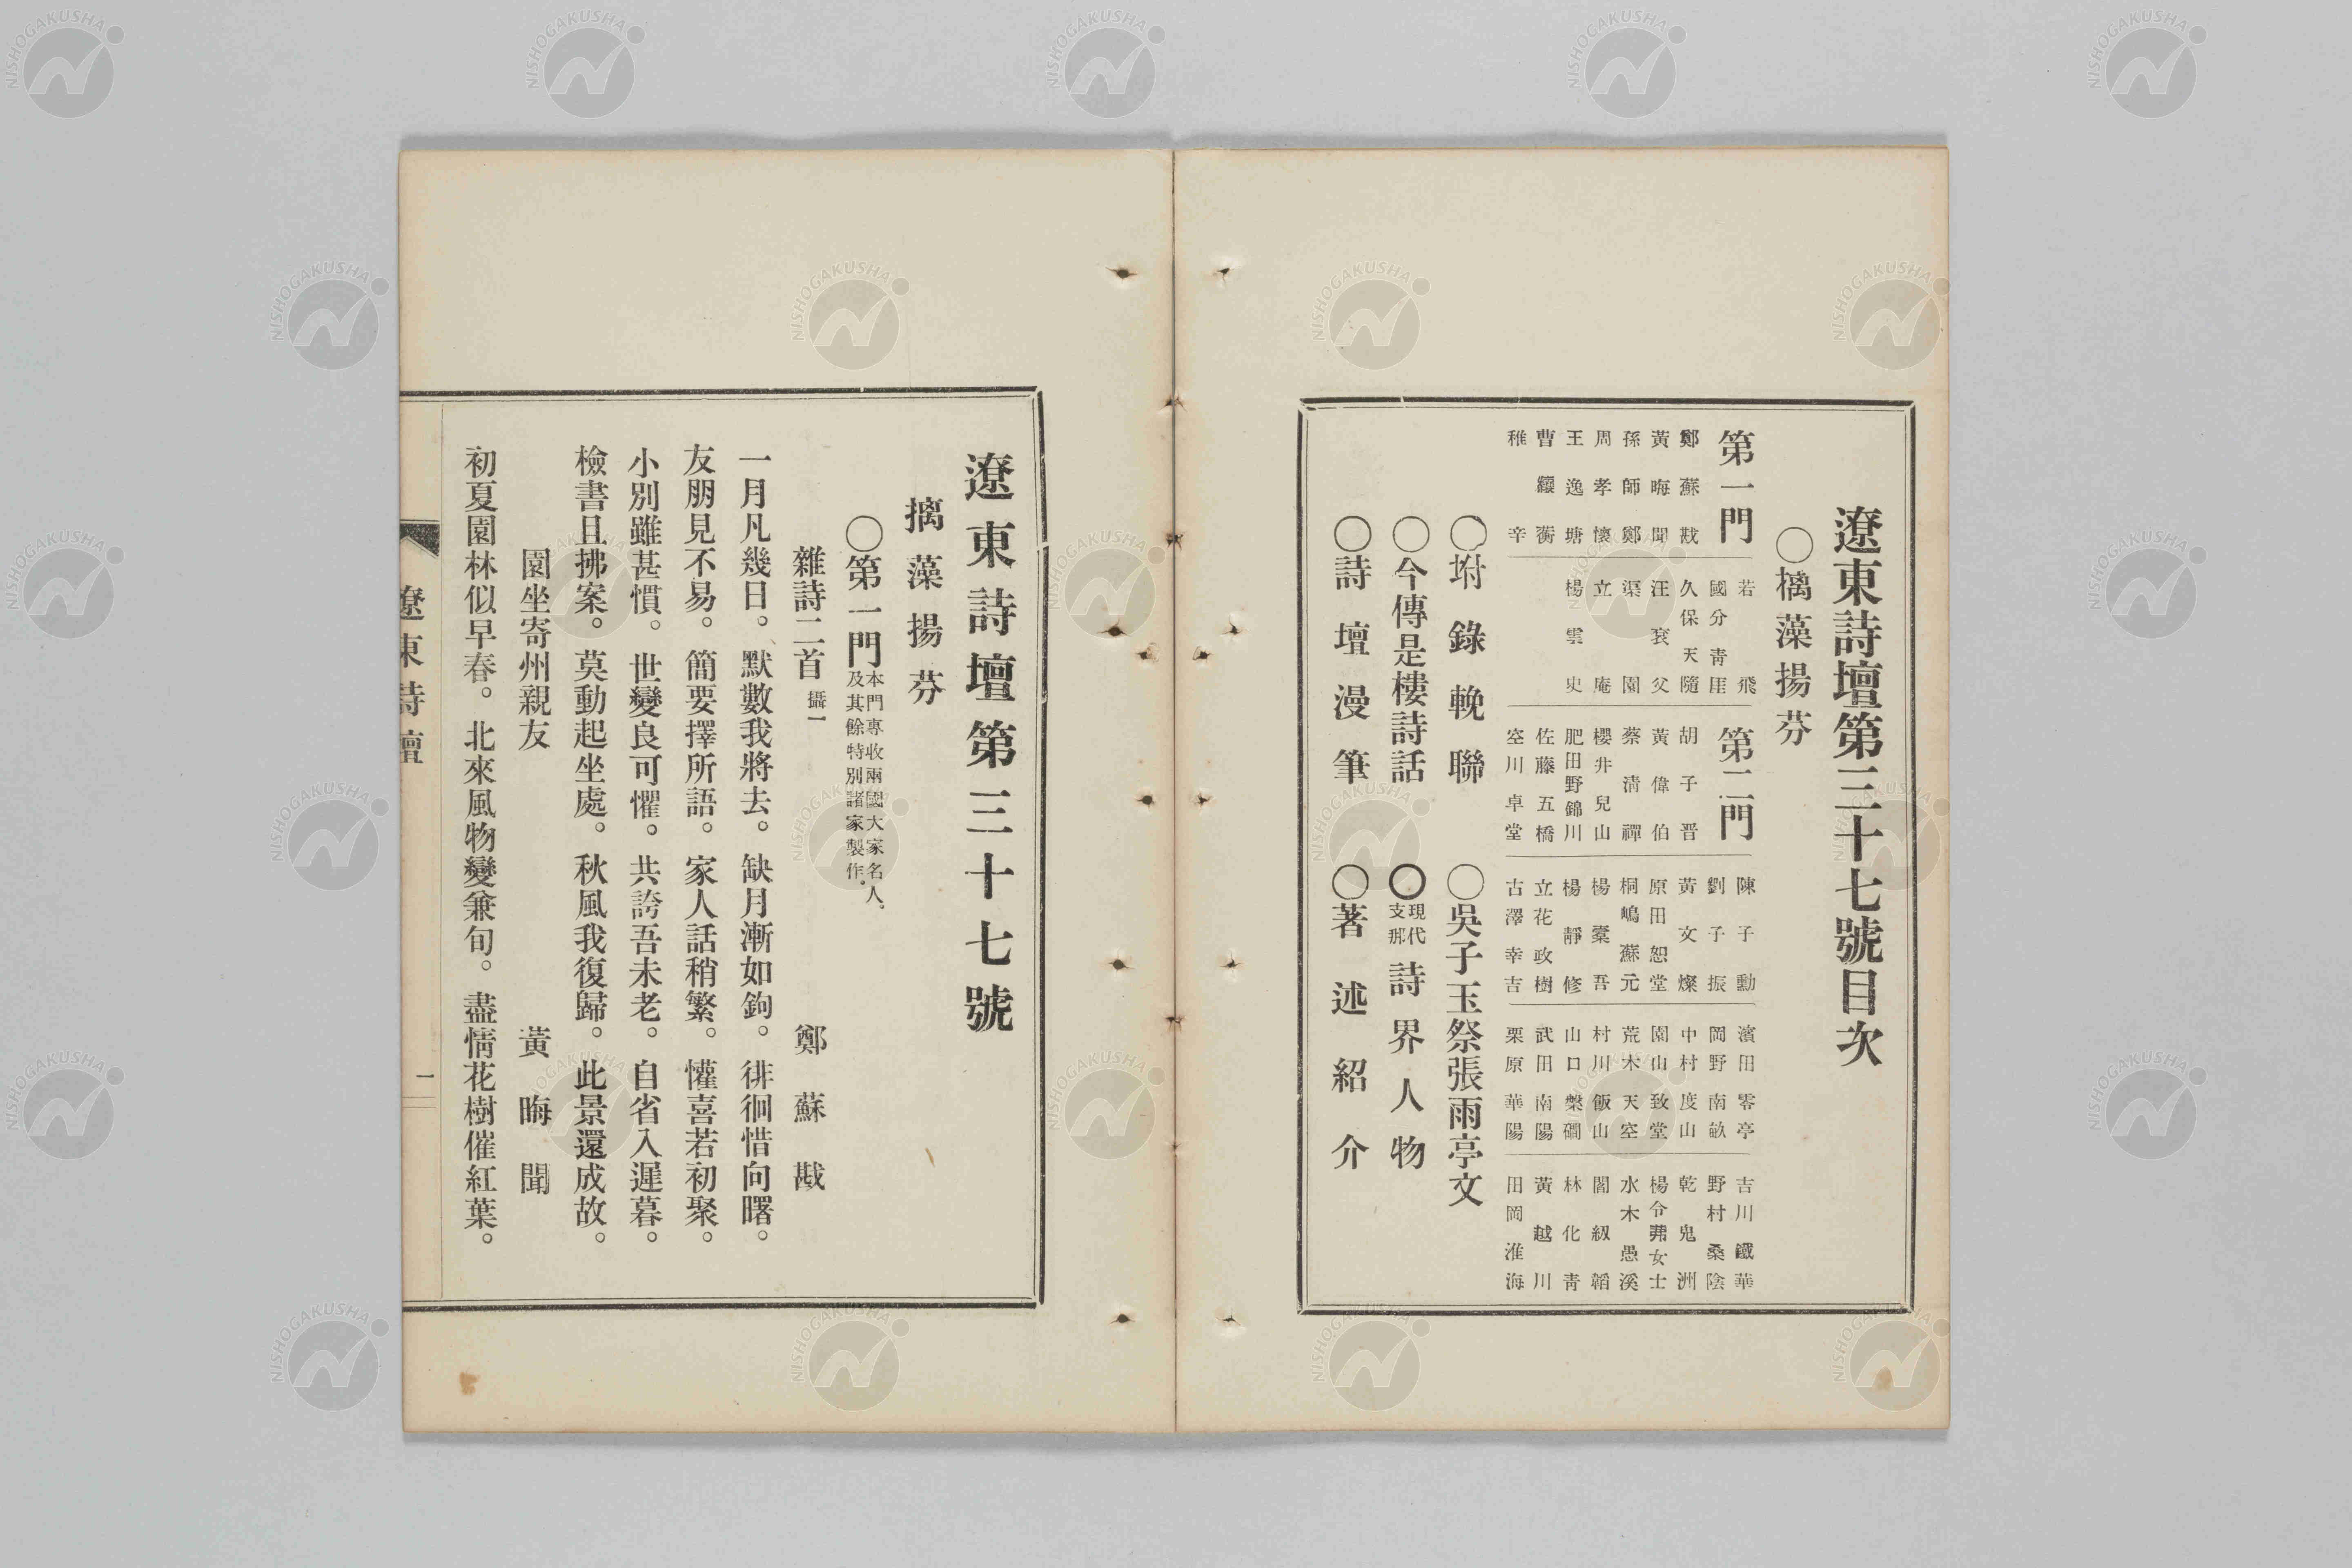 遼東詩壇第三十七號目次
○樆藻揚芬
第一門
鄭蘇戡
黃晦聞
孫師鄭
周孝懷
王逸塘
曹纕蘅
稚辛
若飛
國分青厓
久保天隨
汪袞父
渠園
立庵
楊雲史
第二門
胡子晋
黃偉伯
蔡清禪
櫻井兒山
肥田野錦川
佐藤五橋
空川卓堂
陳子勳
劉子振
黃文燦
原田恕堂
桐嶋蘇元
楊橐吾
楊靜修
立花政樹
古澤幸吉
濱田零亭
岡野南畝
中村度山
園山致堂
荒木天空
村川飯山
山口槃磵
武田南陽
栗原華陽
吉川鐵華
野村桑陰
乾鬼洲
楊令茀女士
水木愚溪
閻紉韜
林化青
黃越川
田岡淮海
○坿錄輓聯
○吳子玉祭張雨亭文
○今傳是樓詩話
○現代支那詩界人物
○詩壇漫筆
○著述紹介
遼東詩壇第三十七號
摛藻揚芬
○第一門 本門專收兩國大家名人。
及其餘特別諸家製作。
雜詩二首 攝一 鄭蘇戡
一月凡幾日。默數我將去。缺月漸如鉤。徘徊惜向曙。
友朋見不易。簡要擇所語。家人話稍繁。懽喜若初聚。
小別雖甚慣。世變良可懼。共誇吾未老。自省入遲暮。
檢書且拂案。莫動起坐處。秋風我復歸。此景還成故。
園坐寄州親友 黃晦聞
初夏園林似早春。北來風物變兼旬。盡情花樹催紅葉。
遼東詩壇
一
NISHOGAKUSHA